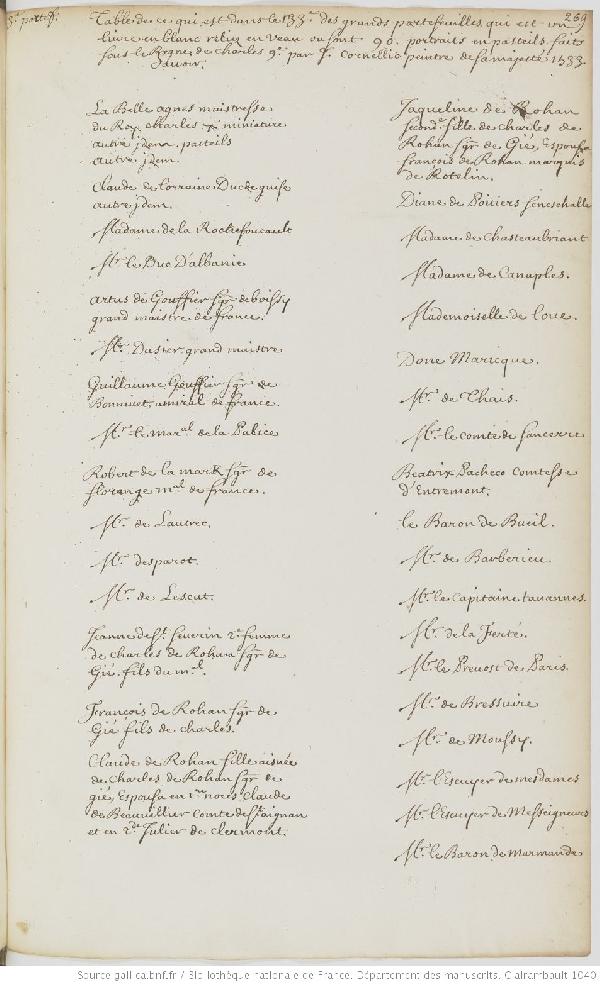 3e. porte f.
269
Table de ce qui est dans le 133e. des grands portefeuilles qui est un
livre en blanc relié en veau ou sont 98. portraits en pasteils faits
sous le Regne de charles 9e. par f. Cornellio peintre de sa majesté 1533
Savoir.
La Belle agnes maistresse
du Roy charles miniature
autre jdem pasteils
autre jdem.
Claude de lorraine Duc de guise
autre jdem.
Madame de la Rochefoucault
Mr. le Duc D'albanie
artus de Gouffier sgr. de boissy
grand maistre de france.
Mr. Dasier grand maistre
Guillaume Gouffier sgr. de
Bonnivet, amiral de france
Mr. le maral. de la Palice
Robert de la mark sgr. de
florange mal. de france.
Mr. de Lautrec.
Mr. desparot.
Mr. de Lescut.
Jeanne de St. severin 2e. femme
de Charles de Rohan sgr. de
Gié fils du mal.
François de Rohan sgr. de
Gié fils de charles.
Claude de Rohan fille aisnée
de Charles de Rohan sgr. de
gié, Espousa en 1res. noces Claude
de Beauvillier Comte de St. aignan
et en 2d. Julier de clermont.
Jaqueline de Rohan
seconde. fille de charles de
Rohan sgr. de Gié, Espousa
françois de Rohan marquis
de Rotelin.
Diane de Poitiers seneschalle
Madame de Chasteaubriant
Madame de Canaples.
Mademoiselle de loue.
Done Maricque.
Mr. de Thais.
Mr. le comte de sancerre
Beatrix Pacheco Comtesse
d'Entremont.
le Baron de Bueil.
Mr. de Barberieu
Mr. le Capitaine tavannes.
Mr. de la Ferté.
Mr. le Prevost de Paris.
Mr. de Bressuire
Mr. de Moussy.
Mr. l'Escuyer de mesdames
Mr. l'Escuyer de Messeigneurs
Mr. le Baron de Marmande
Source gallica.bnf.fr / Bibliothèque nationale de France. Département des manuscrits. Clairambault 1040